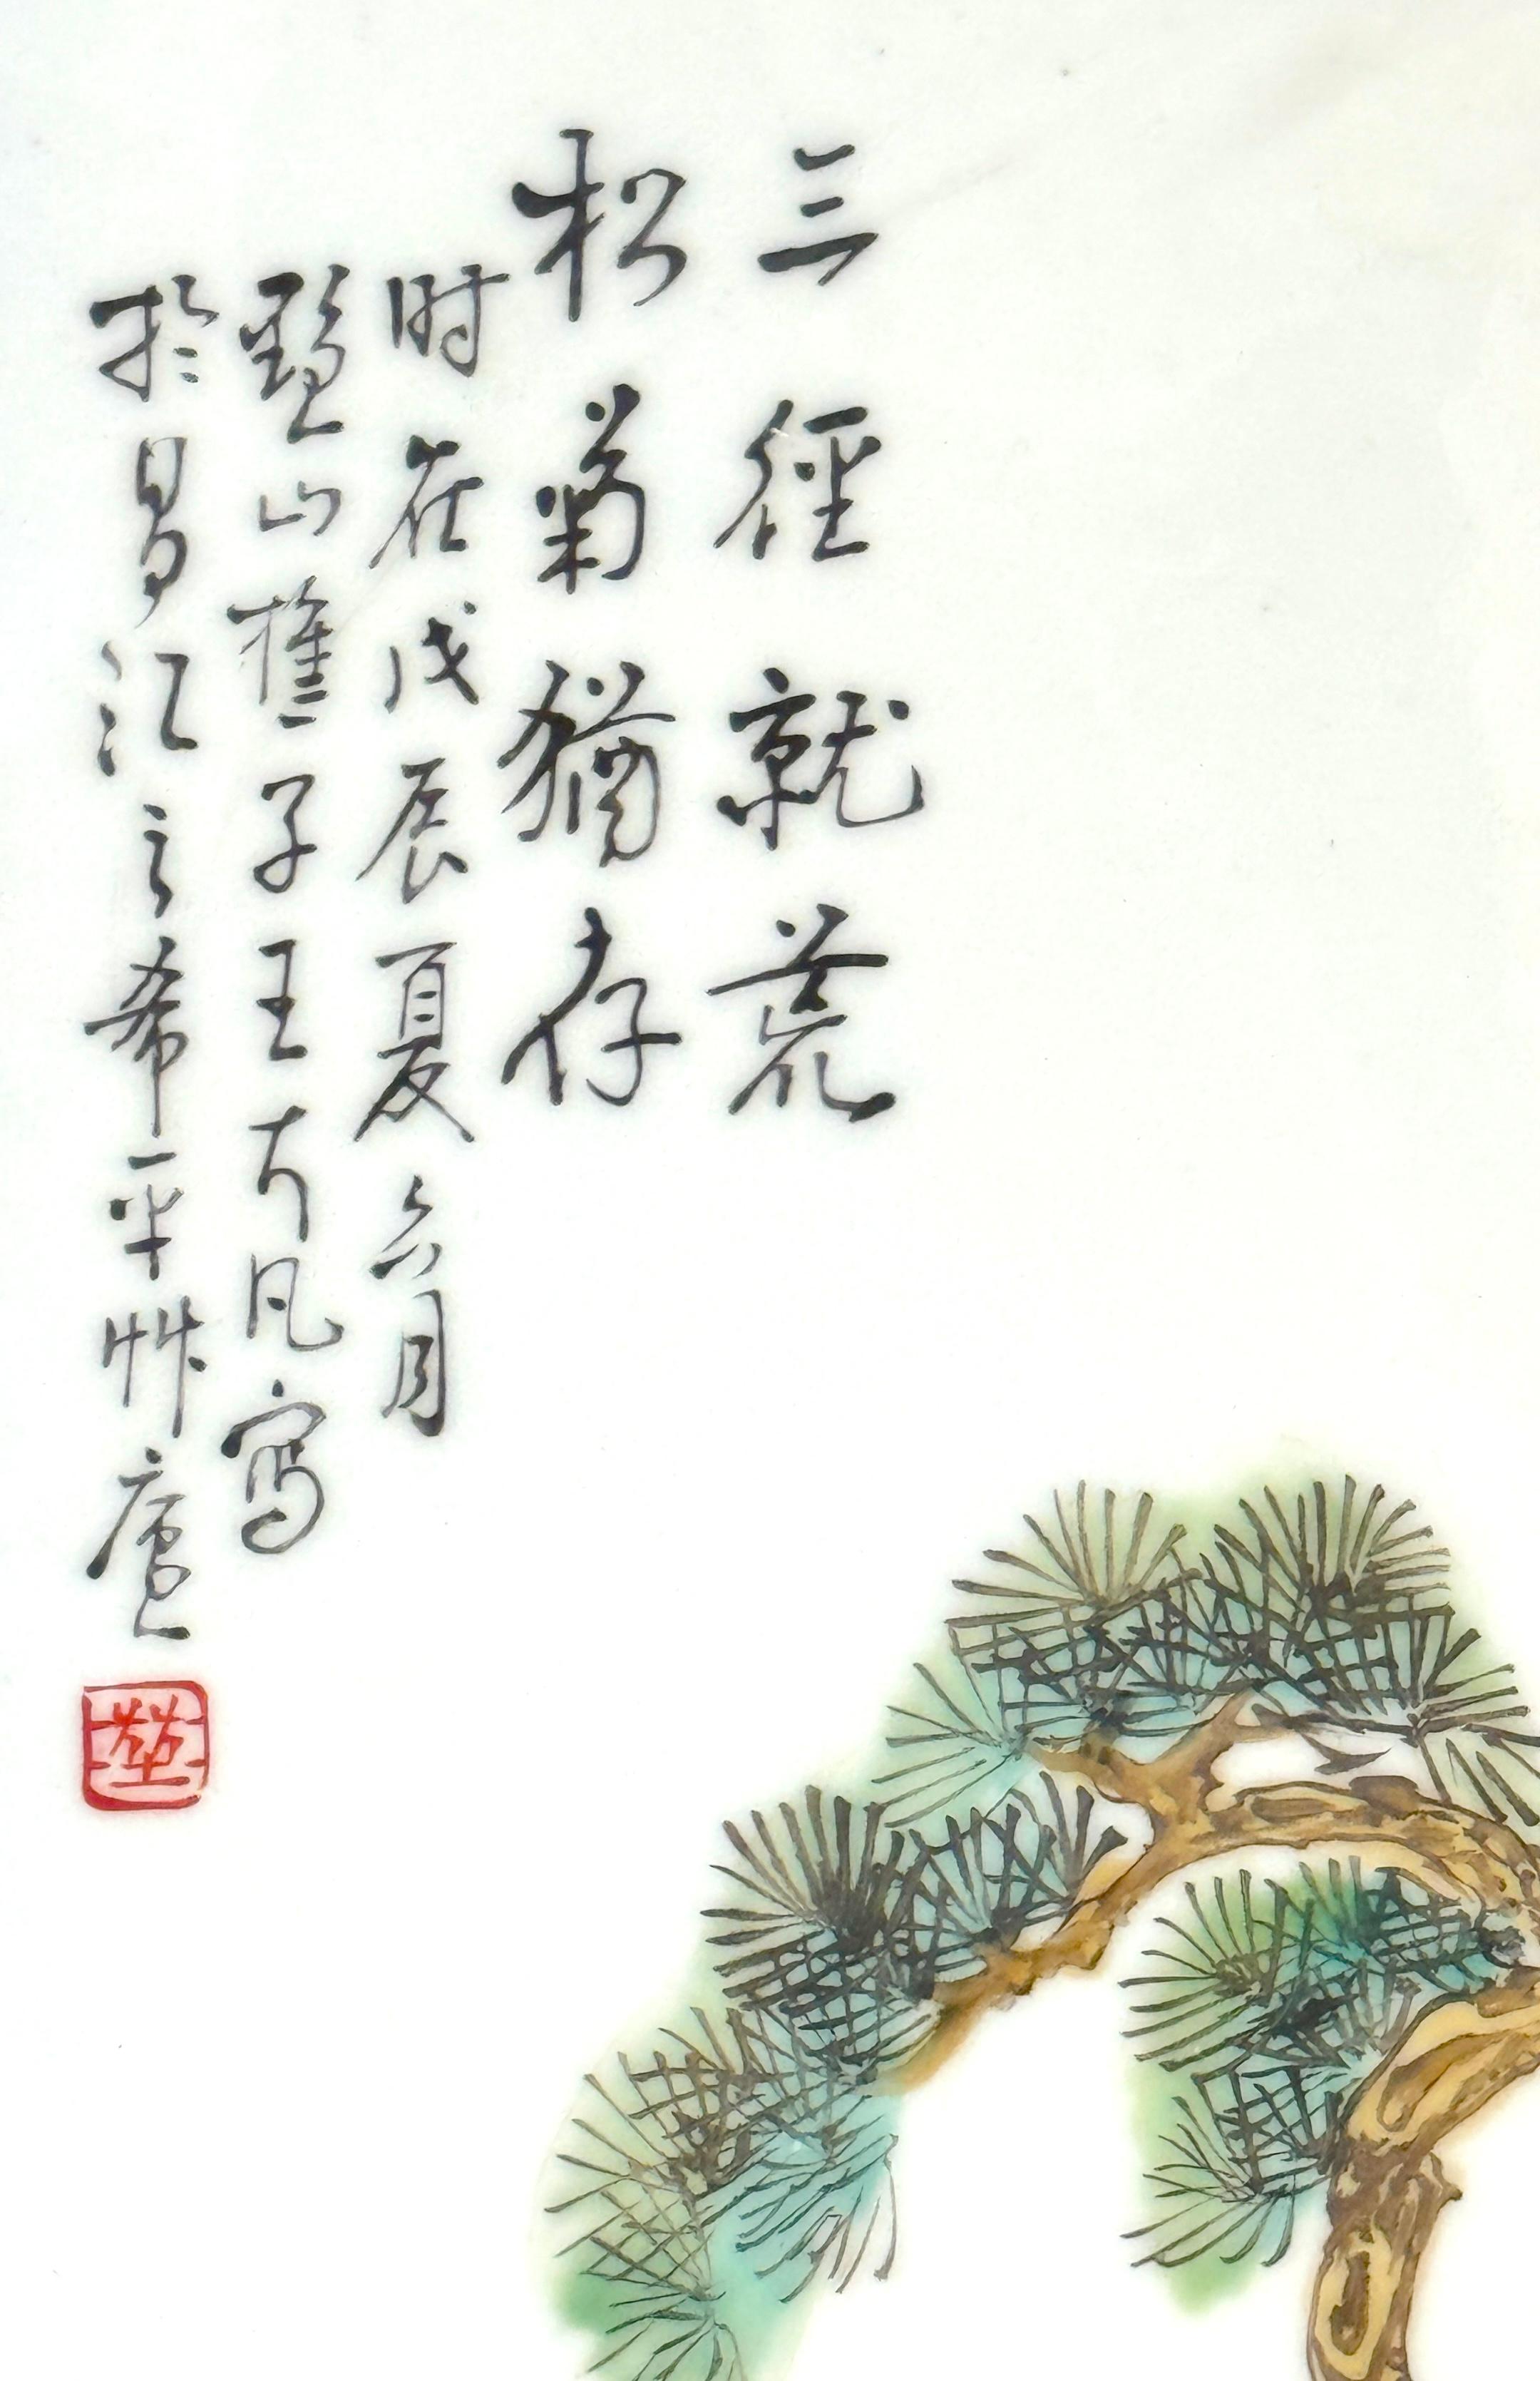 三徑就荒
松菊猶存
时在戊辰夏六月
黟山樵子王大凡寫
於昌江之希平艸廬